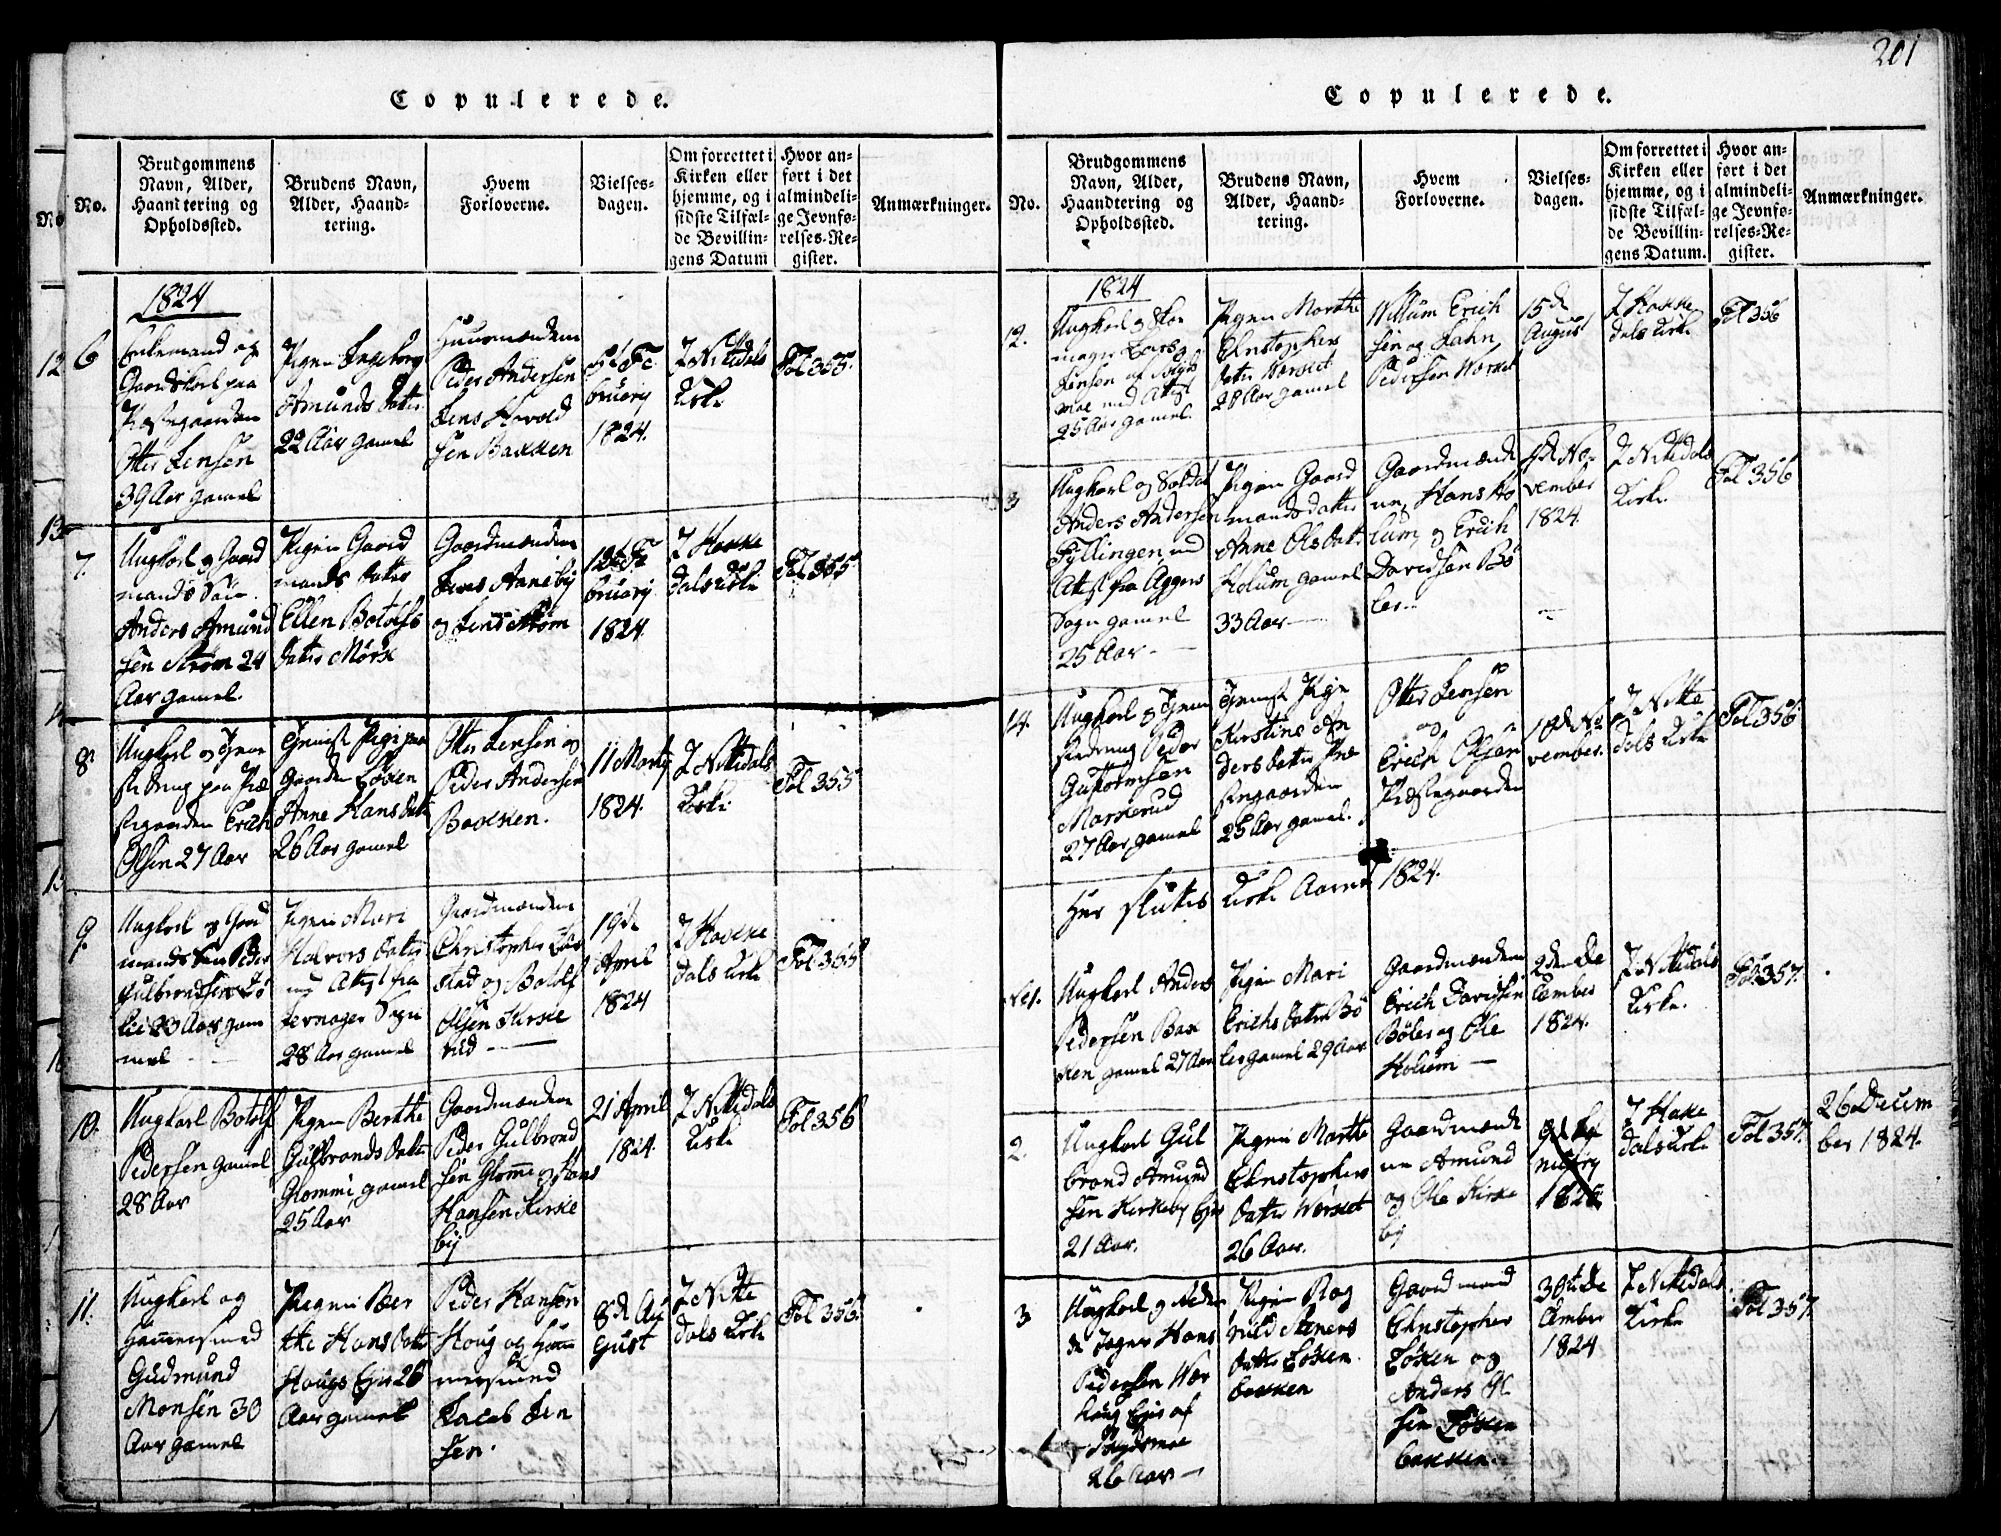 Copulerede.
No.
Brudgommens
Navn, Alder,
Haandtering og
Opholdssted.
Brudens Navn,
Alder, Haand-
tering.
Hvem
Forloverne.
Vielses-
dagen.
Om forrettet i
Kirken eller
hjemme, og i
sidste Tilfæl-
de Bevillin-
gens Datum
Hvor an-
ført i det
almindeli-
ge Jevnfø-
relses-Re-
gister.
Anmærkninger.
1824
6
Enkemand og
Gaardskarl paa
Præstegaarden
Otter Jensen
39 Aar gamel
Pigen Ingeborg
Amunds Datter
22 Aar gamel
Huusmændene
Peder Andersen
Jens Havold
sen Bakken
5t Fe
bruarij
1824.
I Nittedals
Kirke
Fol 355.
7.
Ungkarl og Gaard
mands Søn
Anders Amund
sen Strøm 24
Aar gamel.
Pigen Gaard
mands Datter
Ellen Botolfs
Datter Mørk
Gaardmændene
Lars Aanebij
og Jens Strøm
12te Fe
bruarij
1824.
I Hakke
dals Kirke
Fol 355
8
Ungkarl og Tjene
ste Dreng paa Præ
stegaarden Erich
Olsen 27 Aar
Tjeneste Pige paa
Gaarden Løken
Anne Hans Datter
26 Aar gamel
Otter Jensen og
Peder Andersen
Bakken.
11 Marty
1824.
I Nittedals
Kirke
Fol 355
9.
Ungkarl og Gaard
mands Søn Peder
Gulbrandsen
23 Aar gam
mel
Pigen Mari
Halvors Datter
med Attest fra
Sogn
28 Aar gamel
Gaardmændene
Christopher
stad og Botolf
Olsen Kirke
rud
19de
April
1824
I Hakke
dals Kirke
Fol 355
10.
Ungkarl Botolf
Pedersen gamel
28 Aar
Pigen Berthe
Gulbrands Datter
Glommi, gamel
25 Aar
Gaardmændene
Peder Gulbrand
sen Glome og Hans
Hansen Kirke
bij
21 April
1824.
I Nittedals
Kirke
Fol 356
11.
Ungkarl og
Hammersmed
Gudmund
Monsen 30
Aar gamel
Pigen Ber
the Hans Datter
Hougs Eje 26
Aar gamel
Peder Hansen
Houg og Ham
mersmed
Jacob Jen
sen.
8de Au
gust
I Nitte
dals Kirke
Fol 356.
201
Copulerede.
No.
Brudgommens
Navn, Alder,
Haandtering og
Opholdssted.
Brudens Navn,
Alder, Haand-
tering.
Hvem
Forloverne.
Vielses-
dagen.
Om forrettet i
Kirken eller
hjemme, og i
sidste Tilfæl-
de Bevillin-
gens Datum.
Hvor an-
ført i det
almindeli-
ge Jevnfø-
relses-Re-
gister.
Anmærkninger.
1824
12.
Ungkarl og Sko
mager Lars
Jensen af
moe med Attest
25 Aar gamel.
Pigen Marthe
Christophers
Datter Wærset
28 Aar gamel
Willum Erich
sen og
Pedersen
15de
August
I Hakke
dals Kirke
Fol 356
3
Ungkarl og Soldat
Anders Andersen
Fyllingen, med
Attest fra Aggers
Sogn gamel
25 Aar
Pigen Gaard
mands datter
Anne Ols Datter
Holum gamel
33 Aar
Gaardmænde
ne, Hans Ho
lum, og Erich
Davidsen Bø
ler
No-
vember
1824.
I Nittedals
Kirke.
Fol 356
14.
Ungkarl og Tjene
stedreng Peder
Guttormsen
Markerud
27 Aar gamel
Tjeneste Pige
Kirstine An
ders Datter Præ
stegaarden
25 Aar gamel.
Otter Jensen
og
Erich Olsen
Præstegaarden
No
vember.
I Nitte
dals Kirke
Fol 356
Her sluttes Kirke Aaret 1824.
No 1.
Ungkarl Anders
Pedersen Bak
ken gamel 27 Aar
Pigen Mari
Erichs Datter Bø
ler gamel 29 Aar
Gaardmændene
Erich Davidsen
Bøler og Ole
Holum
2den De
cember
1824.
I Nittedals
Kirke.
Fol. 357.
2.
Ungkarl Gul
brand Amund
sen Kirkeby Eje
21 Aar.
Pigen Marthe
Christophers
Datter Wærset
26 Aar.
Gaardmænde
ne Amund
og Ole Kirke
by
I Hake
dals Kirke
Fol 357.
26 Decem
ber 1824.
3
Hans
Pedersen
Eje af
26 Aar
Pigen Rag
nild Steners
Datter Løken
bakken
Gaardmand
Christopher
Løken og
Anders Ol
sen Løken
bakken.
30te De
cember
1824
I Nittedals
Kirke
Fol 357.